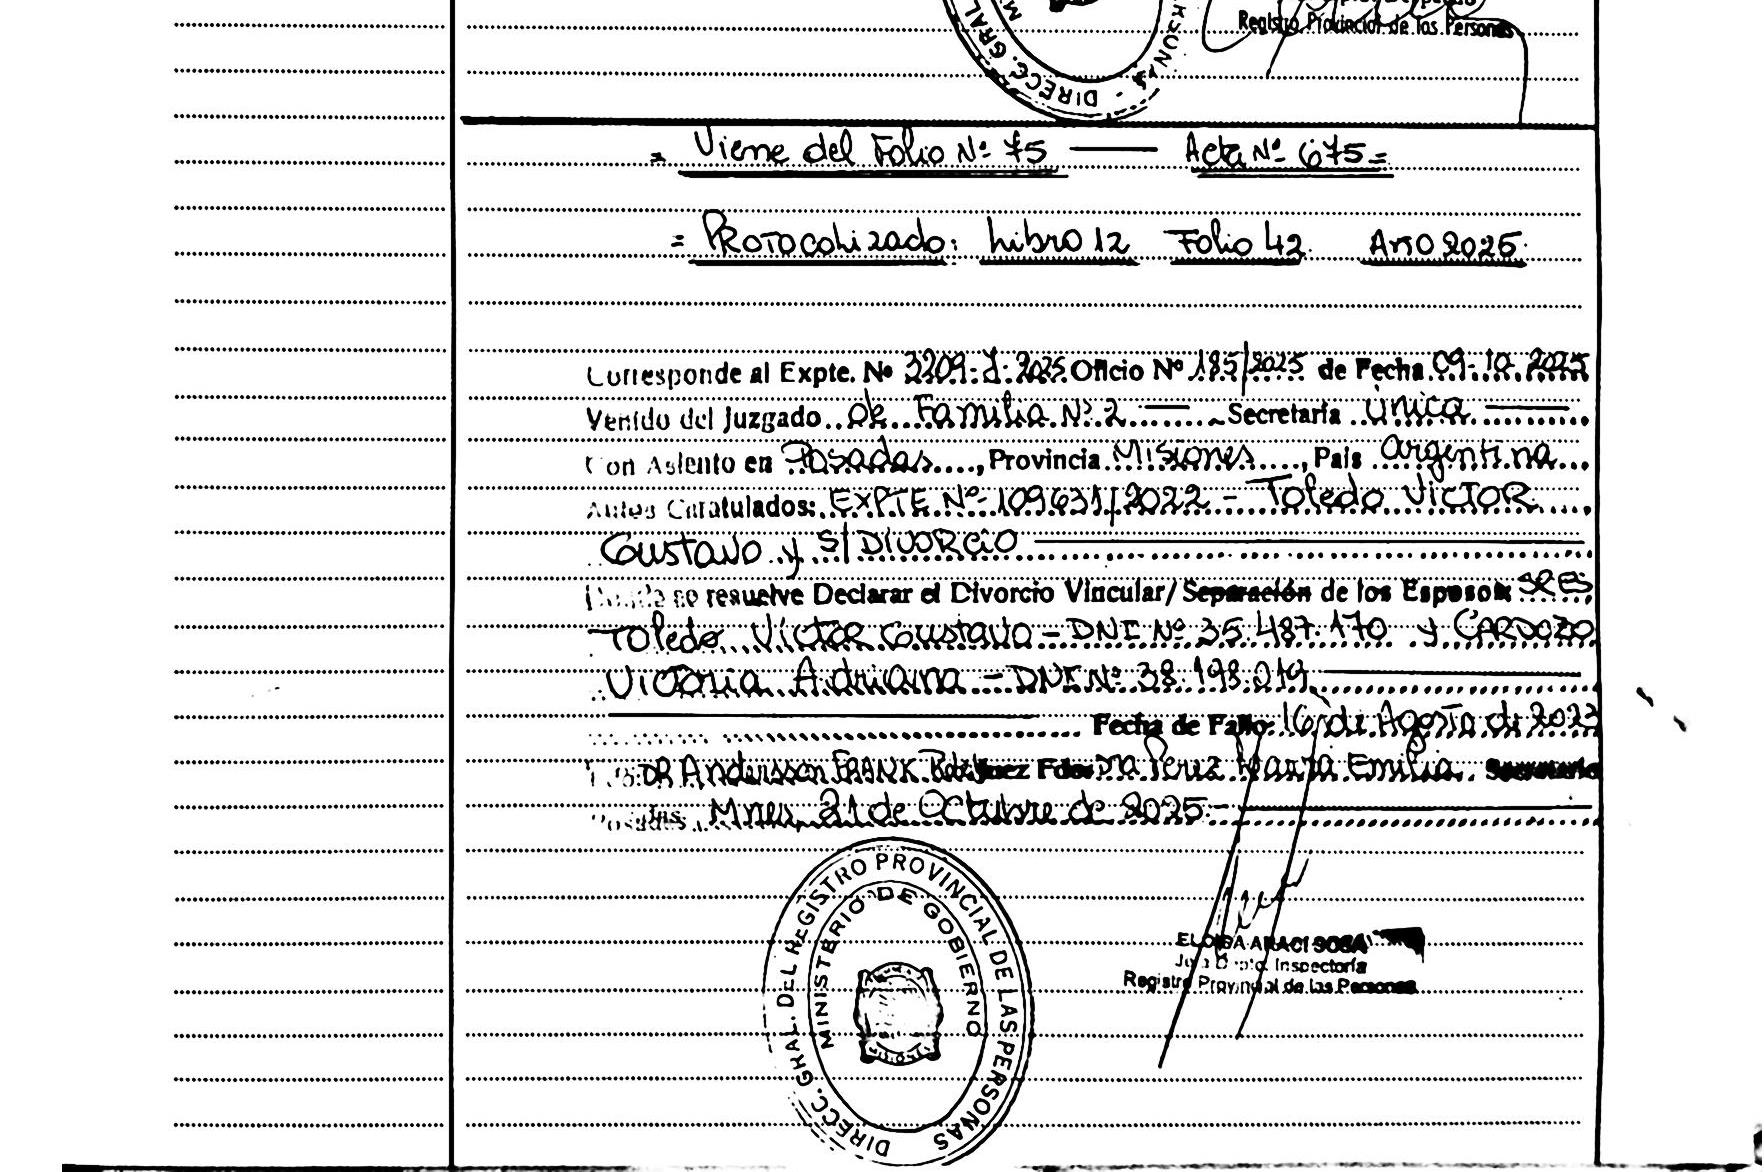 DIRECC. GRAL
Registro Provincial de las Personas
= Viene del Folio Nº 75 —— Acta Nº 675 =
= Protocolizado: Libro 12 Folio 42 Año 2025
Corresponde al Expte. Nº 3209-J-2025 Oficio Nº 185/2025 de Fecha 09-10-2025
Venido del Juzgado de Familia Nº 2 — Secretaría Única
Con Asiento en Posadas, Provincia Misiones, País Argentina
Autos Caratulados: EXPTE Nº 109631/2022 - Toledo Victor
Gustavo y S/ Divorcio
Donde se resuelve Declarar el Divorcio Vincular/Separación de los Esposos: SRES
Toledo Victor Gustavo - DNI Nº 35.487.170 y CARDOZO
Victoria Adriana - DNI Nº 38.198.219
Fecha de Fallo: 16 de Agosto de 2023
DR Andersson FRANK Juez Fdo: DRA Perez María Emilia Secretario
Posadas, Mnes, 21 de Octubre de 2025.-
DIRECC. GRAL. DEL REGISTRO PROVINCIAL DE LAS PERSONAS
MINISTERIO DE GOBIERNO
ELOISA ARACI SOSA
Jefa Dpto. Inspectoría
Registro Provincial de las Personas